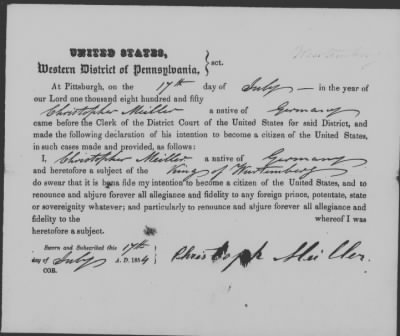 Wurtemberg
UNITED STATES,
Western District of Pennsylvania, } sct.
At Pittsburgh, on the 17th day of July — in the year of
our Lord one thousand eight hundred and fifty
Christopher Miller a native of Germany
came before the Clerk of the District Court of the United States for said District, and
made the following declaration of his intention to become a citizen of the United States,
in such cases made and provided, as follows:
I, Christopher Miller a native of Germany
and heretofore a subject of the King of Wurtemberg
do swear that it is bona fide my intention to become a citizen of the United States, and to
renounce and abjure forever all allegiance and fidelity to any foreign prince, potentate, state
or sovereignty whatever; and particularly to renounce and abjure forever all allegiance and
fidelity to the whereof I was
heretofore a subject.
Sworn and Subscribed this 17th
day of July A. D. 1854
COB.
Christoph Müller